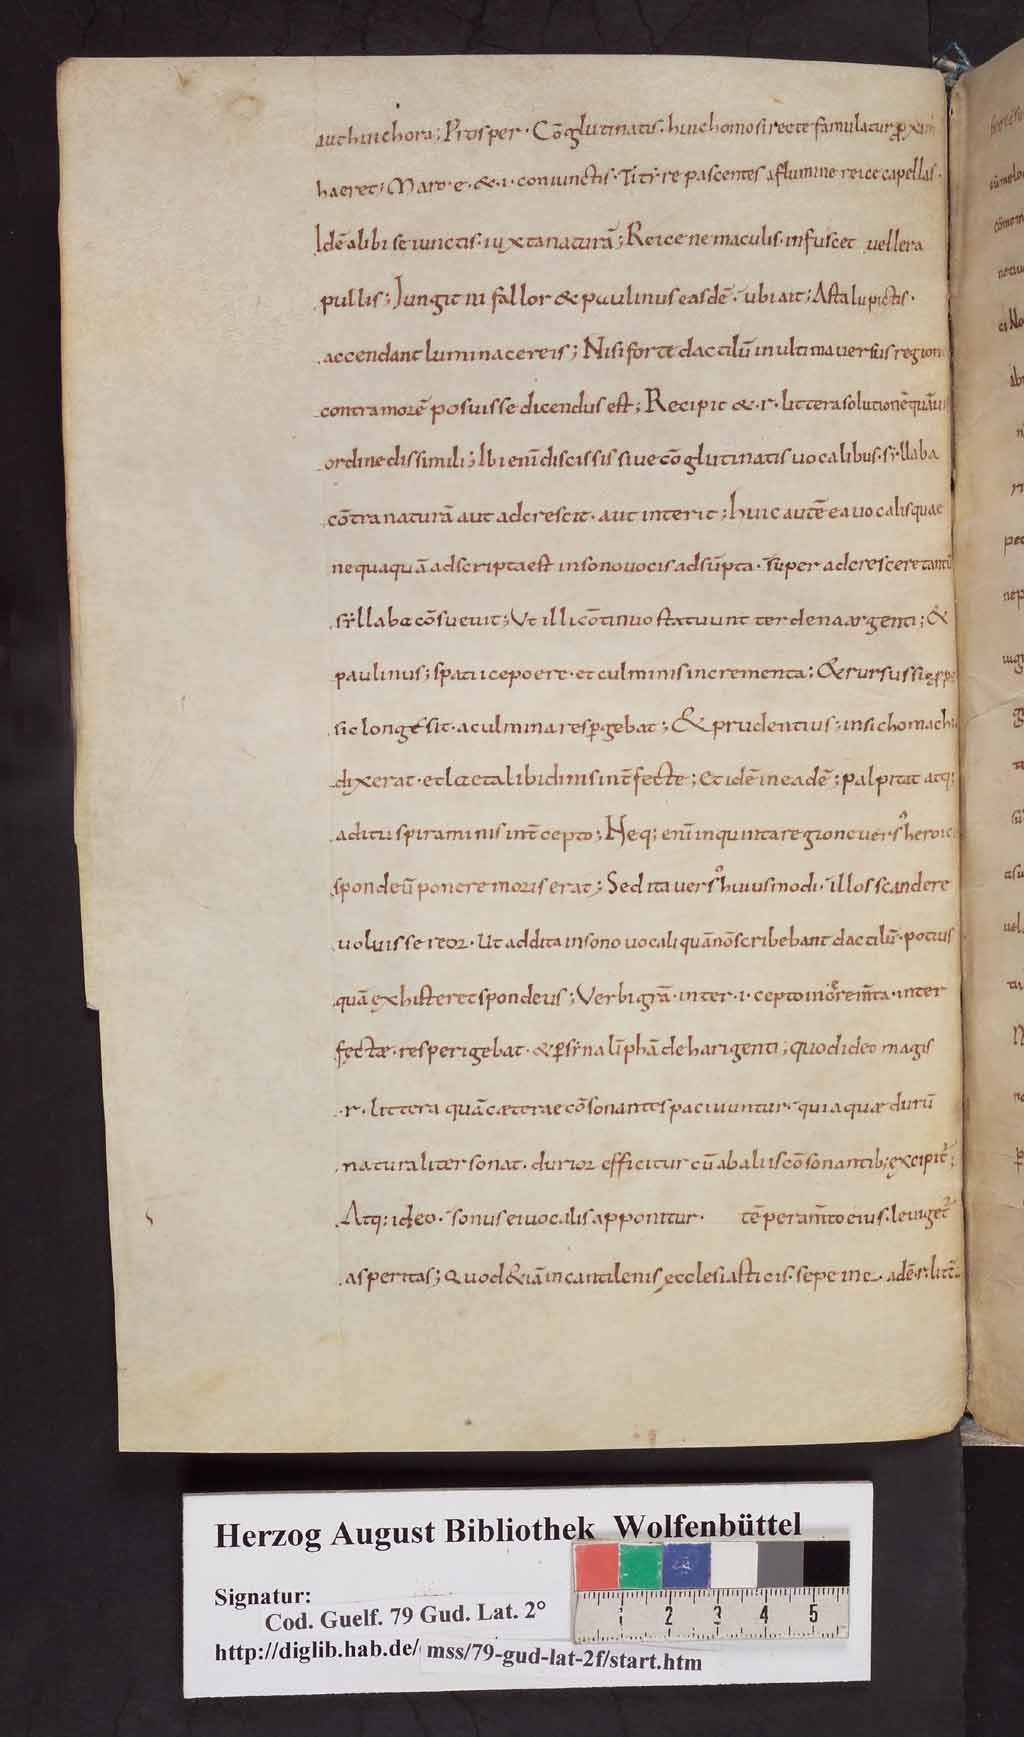 aut hin chora; Prosper · Cōglutinatis · huic homo si recte famulatur
haeret; Maro · e · & · i · coniunctis · Titẏre pascentes a flumine reice capellas ·
Idē alibi seiunctis · iuxta naturā; Reice ne maculis · infuscet uellera
pullis; Jungit ni fallor & paulinus easdē · ubi ait; Asta lu pictis ·
accendant lumina cereis; Nisi forte dactilū in ultima uersus region
contra morē posuisse dicendus est; Recipit & · r · littera solutionē quāui
ordine dissimili; Ibi enī discissis siue cōglutinatis uocalibus · sẏllaba
cōtra naturā aut adcrescit · aut interit; huic autē ea uocalis quae
nequaquā adscripta est in sono uocis adsūpta · super adcrescere tantū
sẏllaba cōsueuit; Ut illi cōtinuo statuunt ter dena argenti; &
paulinus; spatii cepoere · et culminis incrementa; & rursus
sic longe sit · a culmina resp̄gebat; & prudentius; insichomachi
dixerat · et laeta libidinis int̄fectae; et idē in eadē; palpitat atq;
aditu spiraminis int̄cepto; Neq; enī in quinta regione uers᷒ heroic
spondeū ponere moris erat; Sed ita uers᷒ huiusmodi · illos scandere
uoluisse reor · ut addita in sono uocali quā nō scribebant dactilū · potius
quā exhisteret spondeus; Verbi grā · inter · i · cepto increm̄ta · inter
fectæ · resperigebat · & p̄ sẏnalīphā de harigenti; quod ideo magis
· r · littera quā cæterae cōsonantes paciuntur · quia quæ durū
naturaliter sonat · durior efficitur cū ab aliis cōsonantib; excipit᷑;
Atq; ideo · sonus ei uocalis apponitur · tēperam̄to eius · leuiget᷑
asperitas; Quod & iā in cantilenis ecclesiasticis · sepe in e · adē · r · litt̄a
Herzog August Bibliothek Wolfenbüttel
Signatur:
Cod. Guelf. 79 Gud. Lat. 2°
http://diglib.hab.de/ mss/79-gud-lat-2f/start.htm
1 2 3 4 5